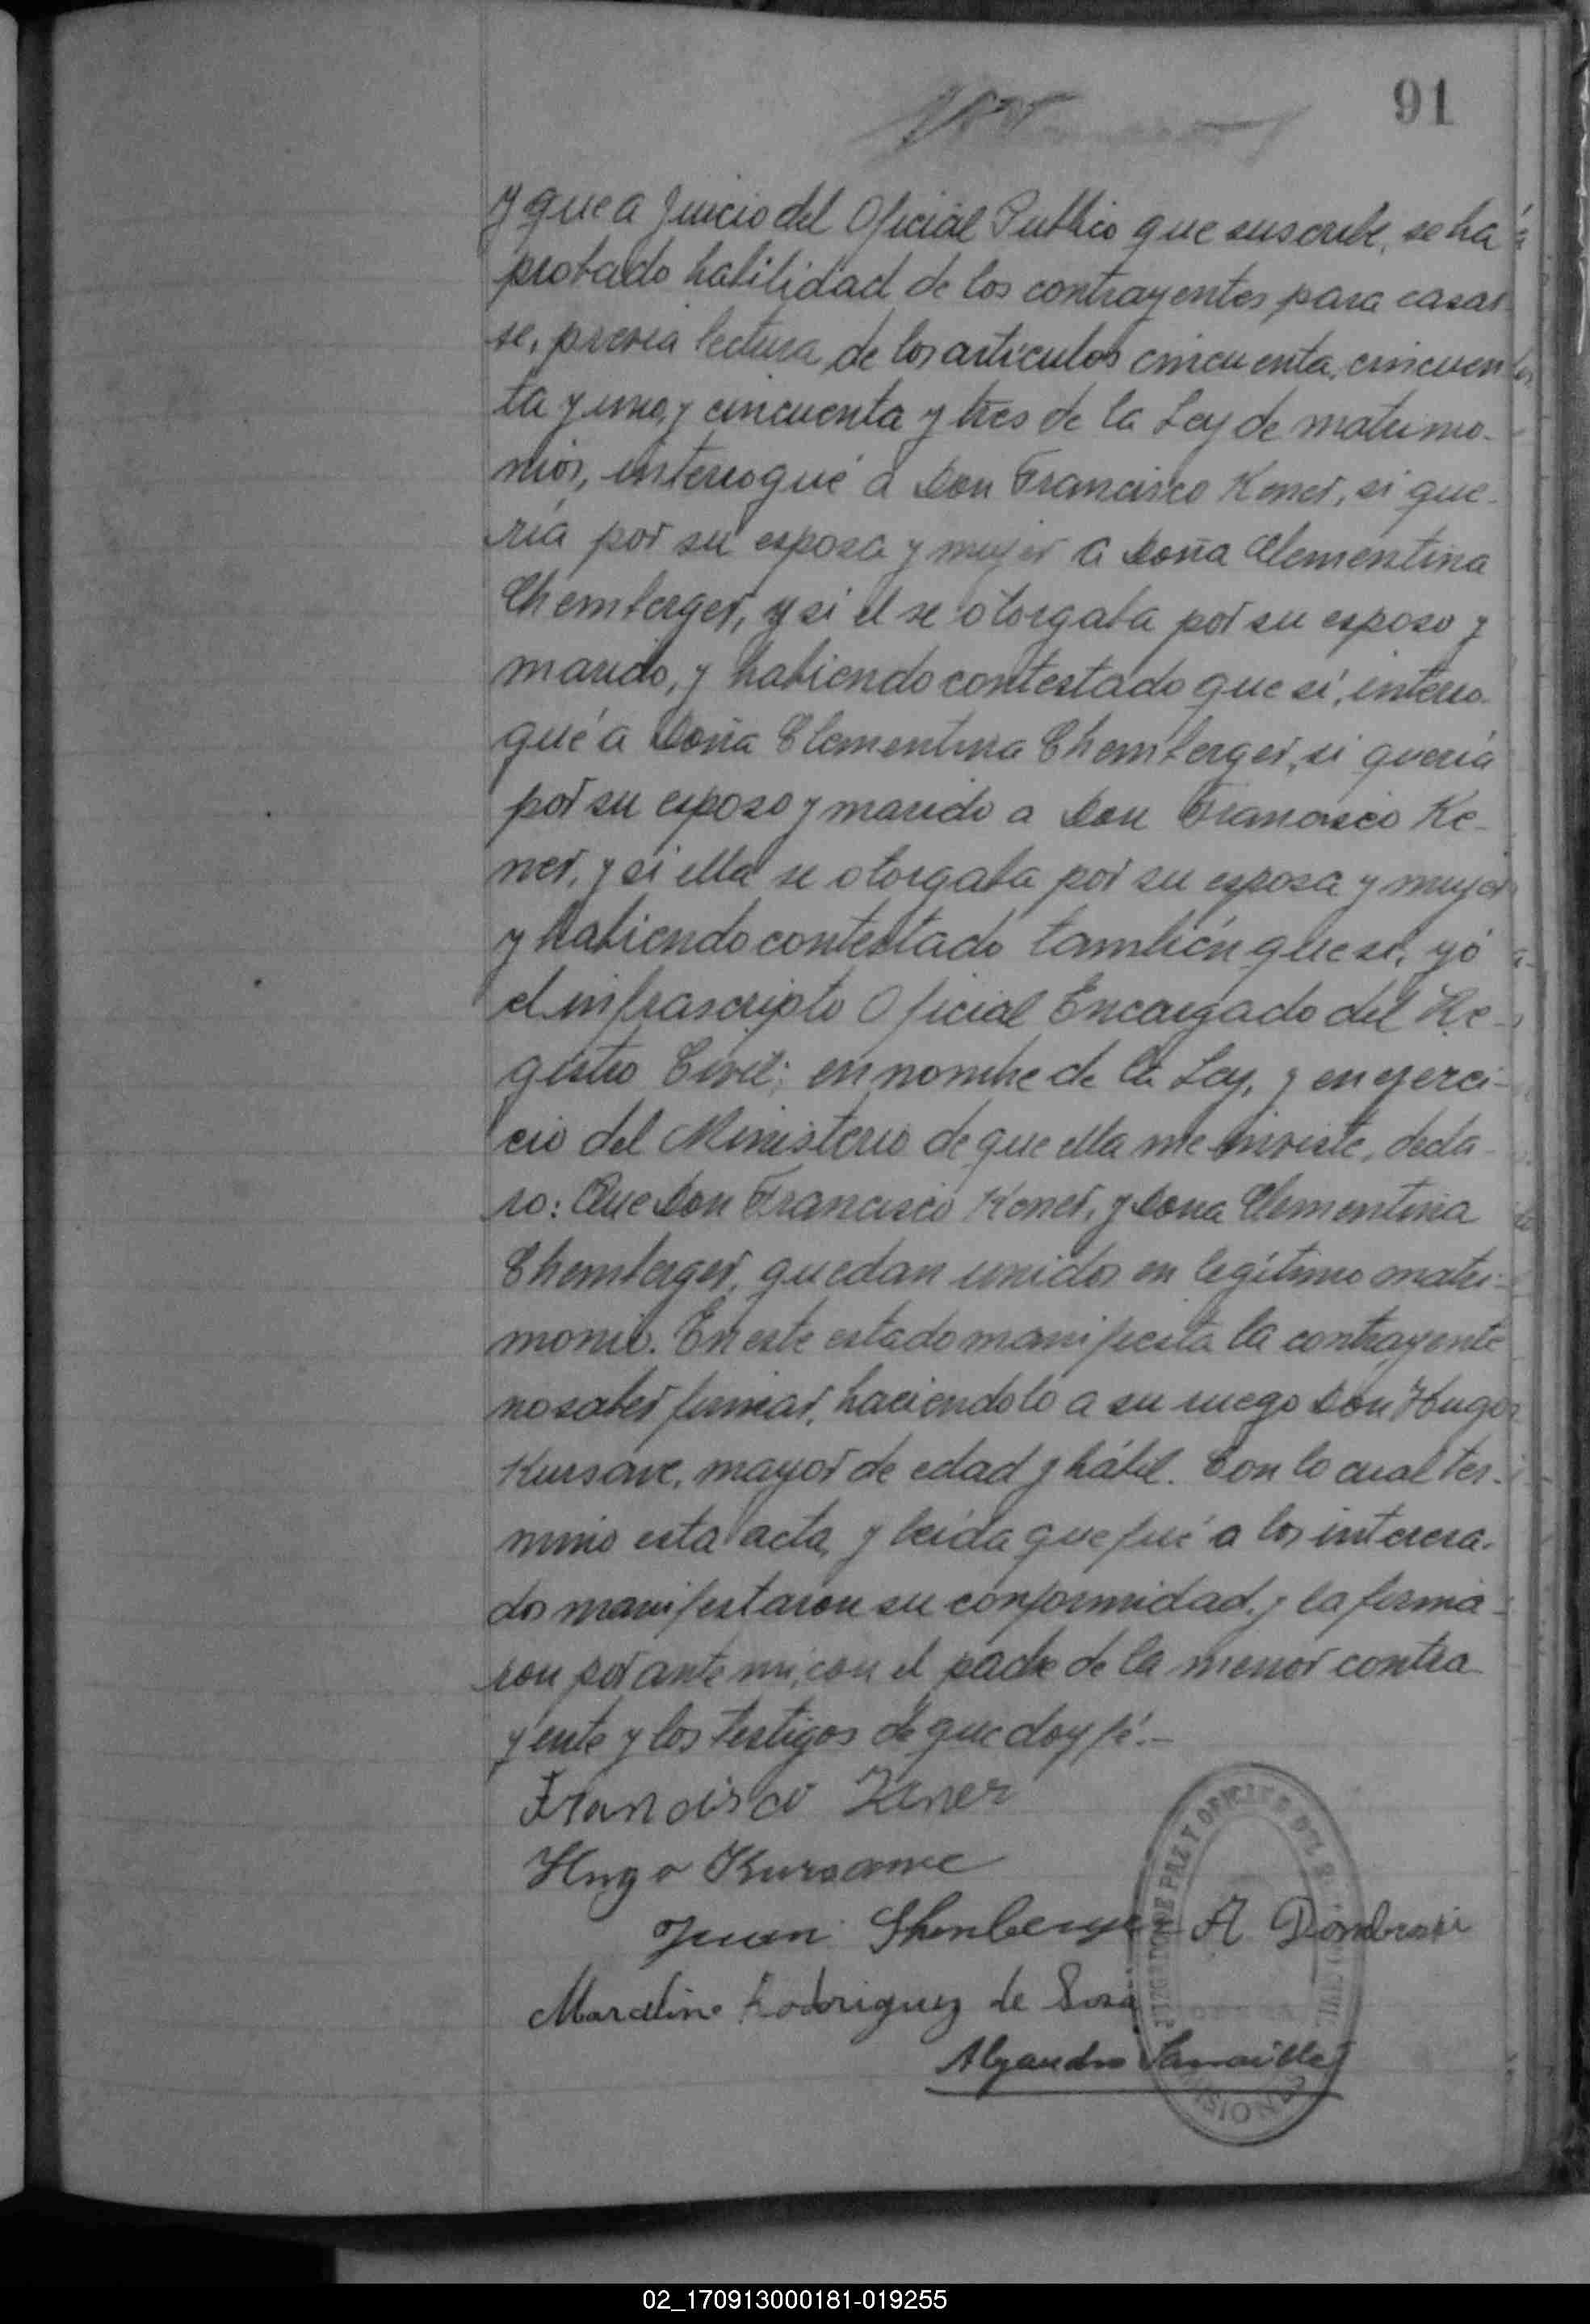 91
y que a juicio del Oficial Publico que suscribe, se ha
probado habilidad de los contrayentes para casar
se, previa lectura de los articulos cincuenta, cincuen
ta y uno, y cincuenta y tres de la Ley de matrimo-
nios, interrogué a Don Francisco Kener, si que-
ria por su esposa y mujer a Doña Clementina
Chemberger, y si el se otorgaba por su esposo y
marido, y habiendo contestado que sí, interro-
gué a Doña Clementina Chemberger, si queria
por su esposo y marido a Don Francisco Ke-
ner, y si ella se otorgaba por su esposa y mujer
y habiendo contestado también que sí, yó
el infrascripto Oficial Encargado del Re-
gistro Civil; en nombre de la Ley, y en ejerci-
cio del Ministerio de que ella me inviste, decla-
ro: Que Don Francisco Kener, y Doña Clementina
Chemberger, quedan unidos en legítimo matri-
monio. En este estado manifiesta la contrayente
no saber firmar, haciendolo a su ruego Don Hugo
Kursave, mayor de edad y hábil. Con lo cual ter-
minó esta acta, y leída que fué a los interesa-
dos manifestaron su conformidad, y la firma-
ron por ante mi, con el padre de la menor contra-
yente y los testigos de que doy fé.-
Francisco Kener
Hugo Kursawe
Juan Shenberger A Dombroski
Marcelino Rodriguez de Sosa
Alejandro
JUZGADO DE PAZ Y OFICINA DEL
MISIONES
02_170913000181-019255